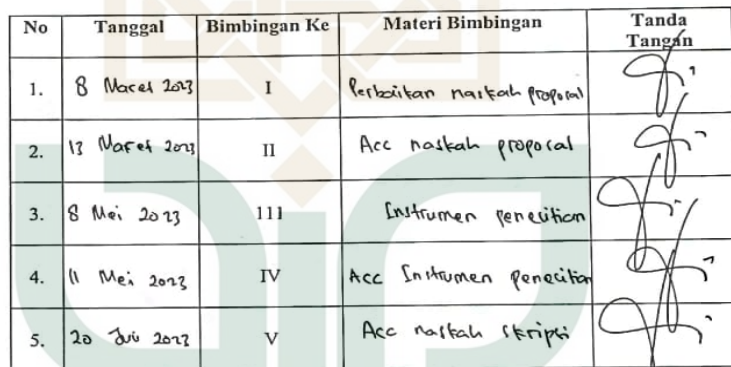 No Tanggal Bimbingan Ke Materi Bimbingan Tanda Tangan
1. 8 Maret 2023 I Perbaikan naskah proposal
2. 13 Maret 2023 II Acc naskah proposal
3. 8 Mei 2023 III Instrumen penelitian
4. 11 Mei 2023 IV Acc Instrumen penelitian
5. 20 2023 V Acc naskah skripsi